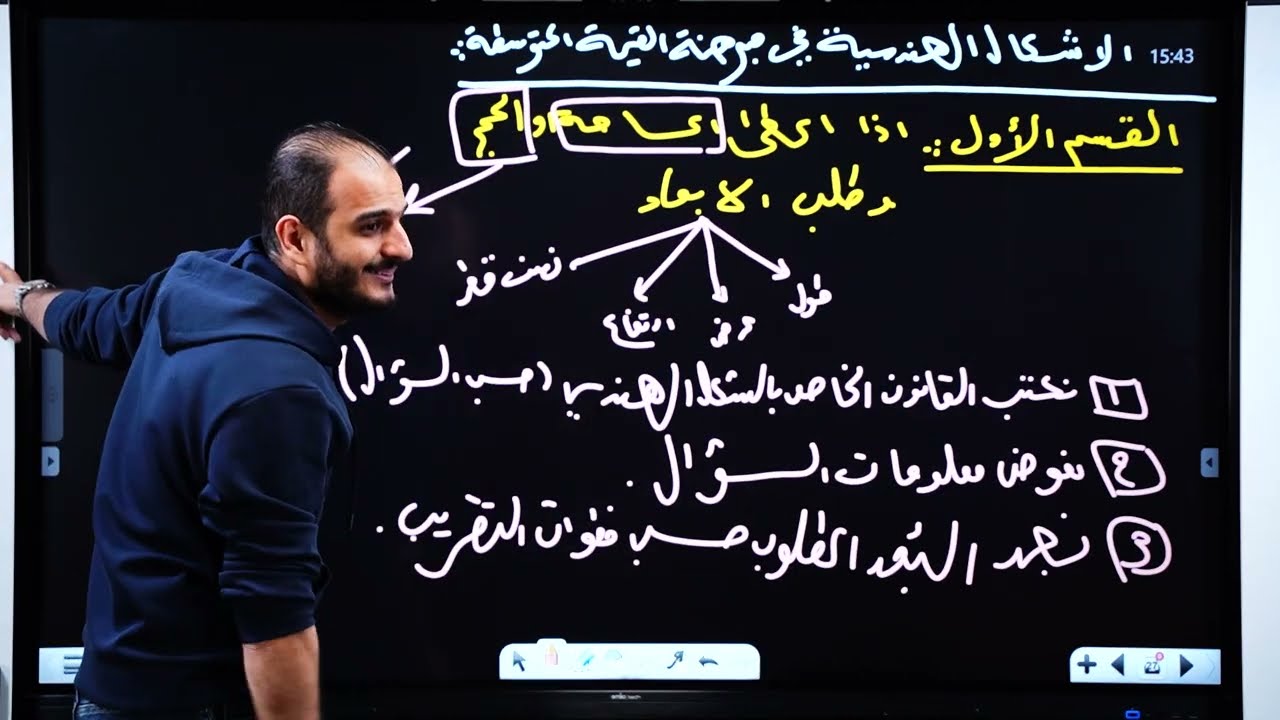 الاشكال الهندسية في مبرهنة القيمة المتوسطة:
15:43
القسم الأول: اذا اعطى المساحة او الحجم
وطلب الابعاد
طول
عرض
ارتفاع
نصف قطر
1 نكتب القانون الخاص بالشكل الهندسي (حسب السؤال)
2 نعوض معلومات السؤال.
3 نجد البُعد المطلوب حسب خطوات التقريب.
27